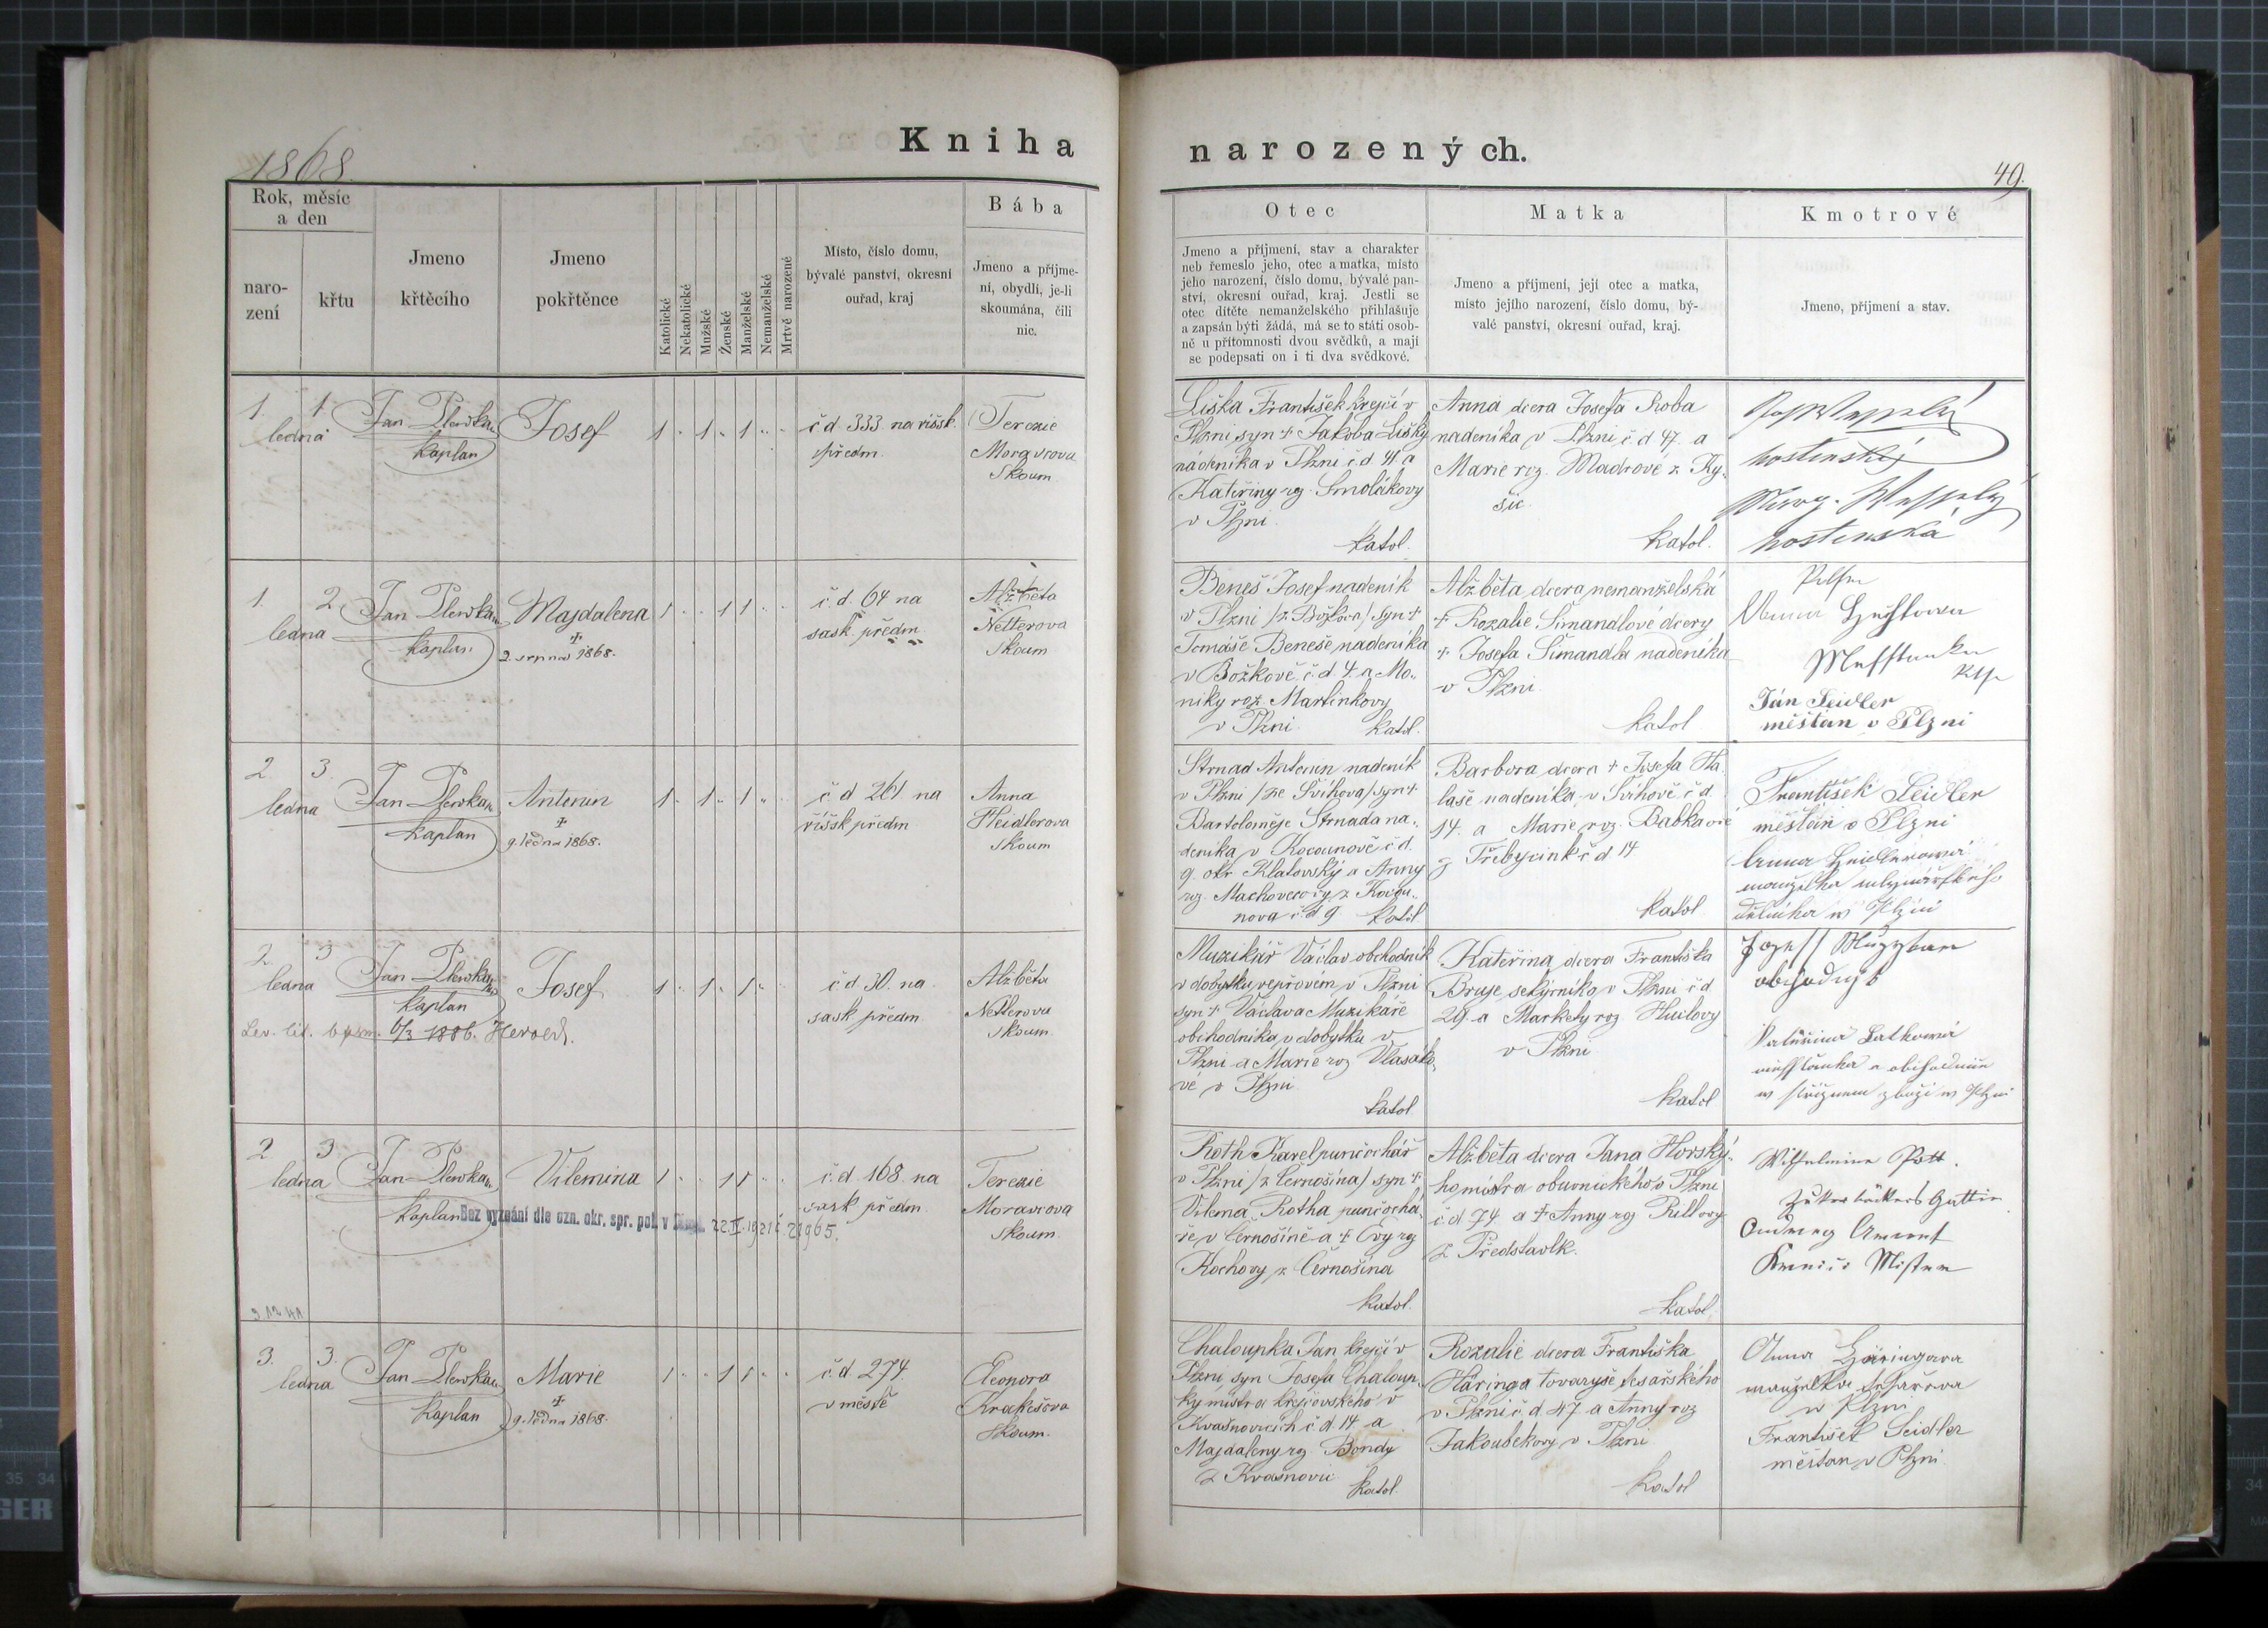 1868.
Kniha
Rok, měsíc
a den
naro-
zení
křtu
Jmeno
křtěcího
Jmeno
pokřtěnce
Katolické
Nekatolické
Mužské
Ženské
Manželské
Nemanželské
Mrtvě narozené
Místo, číslo domu,
bývalé panství, okresní
ouřad, kraj
Bába
Jmeno a příjme-
ní, obydlí, je-li
skoumána, čili
nic.
1. 1.
ledna
Jan Plewka
kaplan
Josef
1 1 1
čd. 333 na říšsk.
předm.
Terezie
Moravcova
Skoum
1. 2.
ledna
Jan Plewka
kaplan
Majdalena
✝
2. srpna 1868.
1 1 1
č.d. 64 na
sask. předm.
Alžběta
Netterova
Skoum
2. 3.
ledna
Jan Plewka
kaplan
Antonin
✝
9. ledna 1868.
1 1 1
č d 261 na
říšsk předm
Anna
Heidlerova
Skoum
2. 3
ledna
Jan Plewka
kaplan
Josef
1 1 1
č d 30. na
sask předm
Alžběta
Netterova
Skoum
6/3 1886. Herold.
2 3.
ledna
Jan Plewka
kaplan
Vilemina
1 1 1
č.d. 168. na
sask předm.
Terezie
Moravcova
Skoum.
Bez vyznání dle ozn. okr. spr. pol. v
3.12.41
3. 3.
ledna
Jan Plewka
kaplan
Marie
✝
9. ledna 1868.
1 1 1
č.d. 274.
v městě
Eleonora
Krakešova
Skoum.
narozených.
49.
Otec
Jmeno a příjmení, stav a charakter
neb řemeslo jeho, otec a matka, místo
jeho narození, číslo domu, bývalé pan-
ství, okresní ouřad, kraj. Jestli se
otec dítěte nemanželského přihlašuje
a zapsán býti žádá, má se to státi osob-
ně u přítomnosti dvou svědků, a mají
se podepsati on i ti dva svědkové.
Matka
Jmeno a příjmení, její otec a matka,
místo jejího narození, číslo domu, bý-
valé panství, okresní ouřad, kraj.
Kmotrové
Jmeno, příjmení a stav.
Liška František krejčí v
Plzni syn ✝ Jakoba Lišky
nádeníka v Plzni č.d. 41 a
Kateřiny rz. Smolákovy
v Plzni
katol.
Anna dcera Josefa Roba
nadeníka v Plzni č d 47. a
Marie roz. Madrové z Ky-
šic.
katol.
hostinský
hostinská
Beneš Josef nadeník
v Plzni /z Božkova/ syn ✝
Tomáše Beneše nadeníka
v Božkově č.d. 4. a Mo-
niky roz. Martinkovy
v Plzni. katol.
Alžběta dcera nemanželská
✝ Rozalie Šimandlové dcery
✝ Josefa Šimandla nadeníka
v Plzni.
katol
Jan Seidler
měštan v Plzni
Strnad Antonin nadeník
v Plzni /ze Švihova/ syn ✝
Bartoloměje Strnada na-
deníka v Kocounově č d.
9. okr. Klatovský a Anny
rz. Machovcovy z Kocou-
nova č d 9 katol
Barbora dcera ✝ Josefa Ha-
laše nadeníka v Švihově č d.
14. a Marie roz. Babkové
z Třebycink č d 14
katol
František Seidler
měštan v Plzni
Muzikář Václav obchodník
v dobytku vepřovém v Plzni
syn ✝ Václava Muzikáře
obchodníka v dobytku v
Plzni a Marie roz Vlasák-
vé v Plzni
katol
Kateřina dcera Františka
v Plzni č d
29. a Markety roz. Huclovy
v Plzni
katol
Roth Karel punčochář
v Plzni /z Černošína/ syn ✝
Vilema Rotha punčochá-
ře v Černošíně a ✝ Evy rz
Kochovy z Černošína
katol.
Alžběta dcera Jana Horský-
ho mistra obuvnického v Plzni
č.d 74 a ✝ Anny rz
z Předslavlk.
katol.
Wilhelmine Pott.
Zukerbäckers Gattin
Chaloupka Jan krejčí v
Plzni syn Josefa Chaloup-
ky mistra krejčovského v
Kvašnovicích č.d. 14 a
Majdaleny rz. Bondy
z Kvašnovic katol.
Rozalie dcera Františka
Häringa tovaryše tesařského
v Plzni č.d. 47 a Anny roz
Jakoubkovy v Plzni.
katol
Anna Häringova
manželka tesařova
v Plzni
František Seidler
měštan v Plzni.